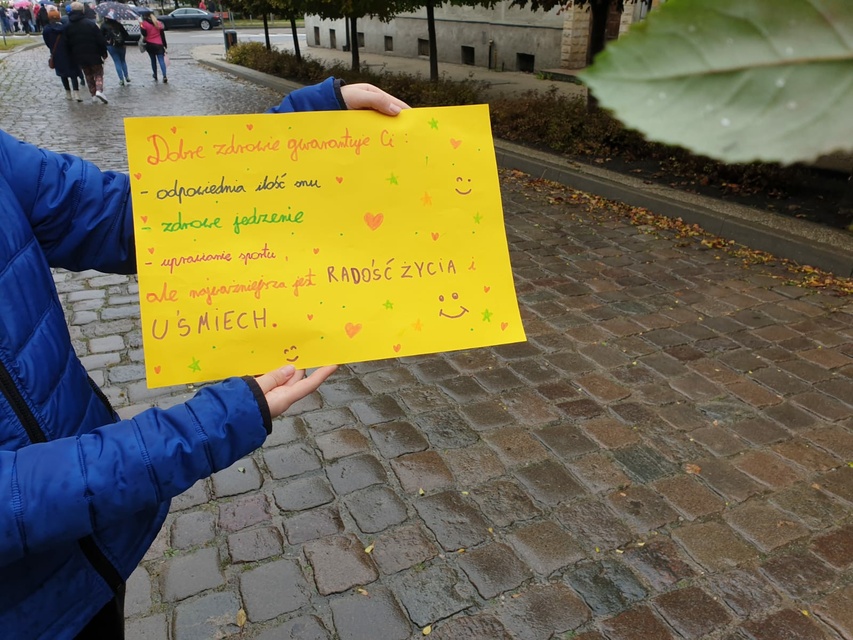 Dobre zdrowie gwarantuje Ci :
- odpowiednia ilość snu
- zdrowe jedzenie
- uprawianie sportu,
ale najważniejsza jest RADOŚĆ ŻYCIA i
UŚMIECH.